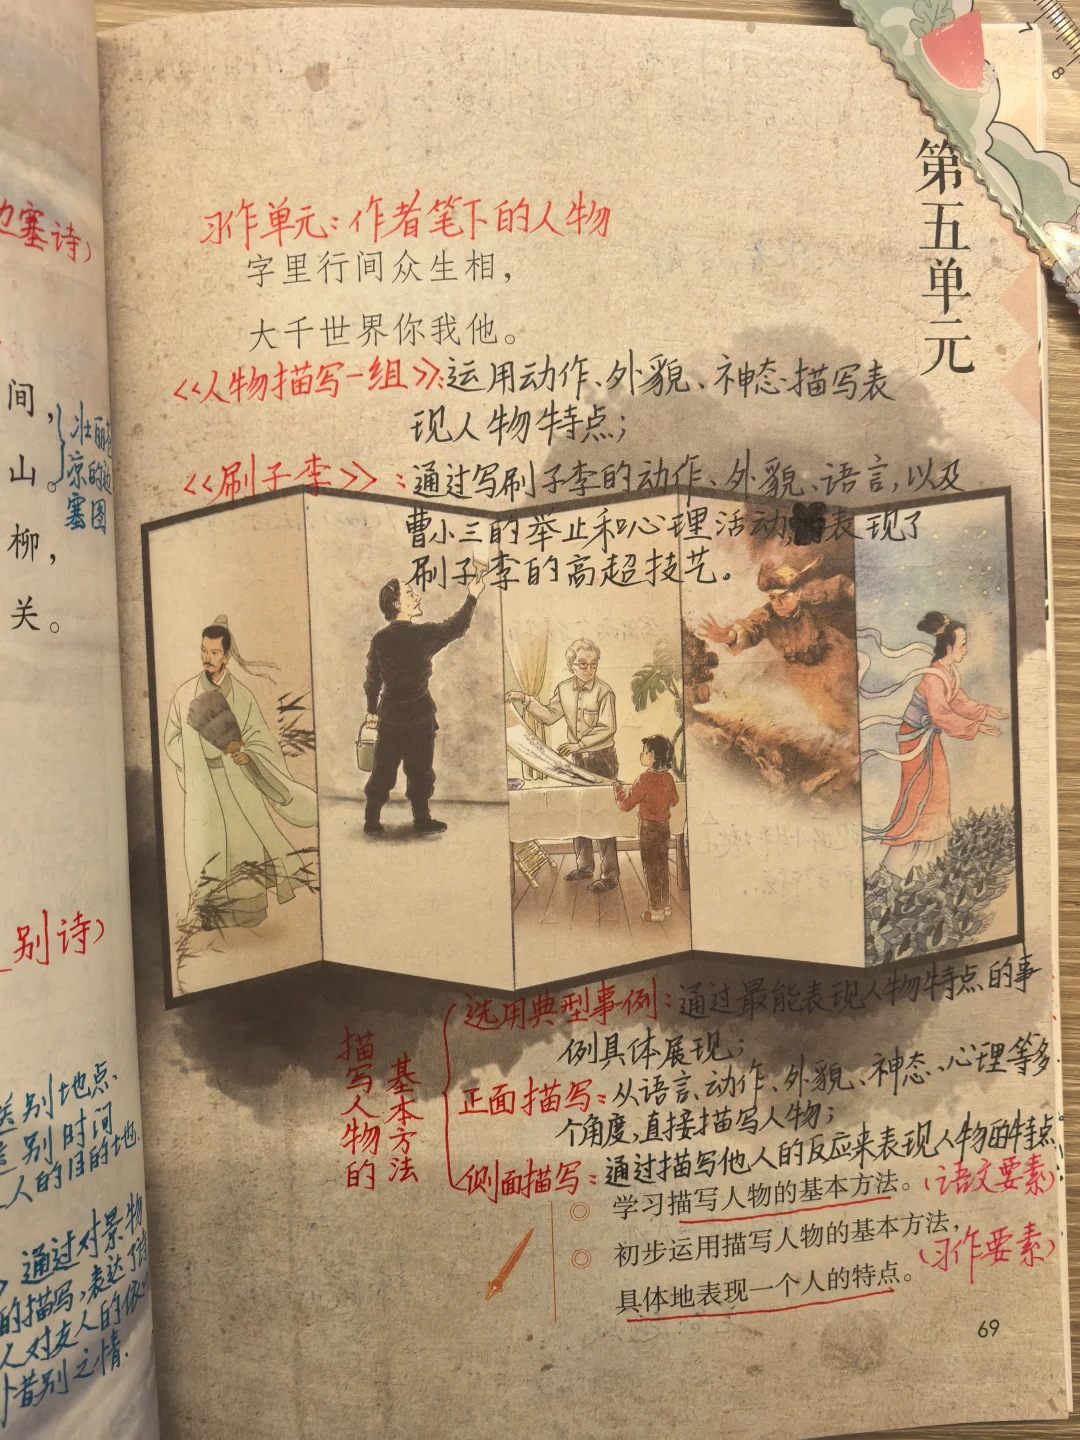 边塞诗)
间,
山。
柳,
关。
壮丽
凉的边
塞图
别诗)
别地点、
别时间
人的目的地.
通过对景物
的描写,表达了诗
人对友人的依
惜别之情.
第五单元
习作单元:作者笔下的人物
字里行间众生相,
大千世界你我他。
《人物描写一组》:运用动作、外貌、神态描写表
现人物特点;
《刷子李》:通过写刷子李的动作、外貌、语言,以及
曹小三的举止和心理活动,表现了
刷子李的高超技艺。
描写人物的
基本方法
选用典型事例:通过最能表现人物特点的事
例具体展现;
正面描写:从语言、动作、外貌、神态、心理等多
个角度,直接描写人物;
侧面描写:通过描写他人的反应来表现人物的特点
学习描写人物的基本方法。(语文要素)
初步运用描写人物的基本方法,
具体地表现一个人的特点。(习作要素)
69
7
8